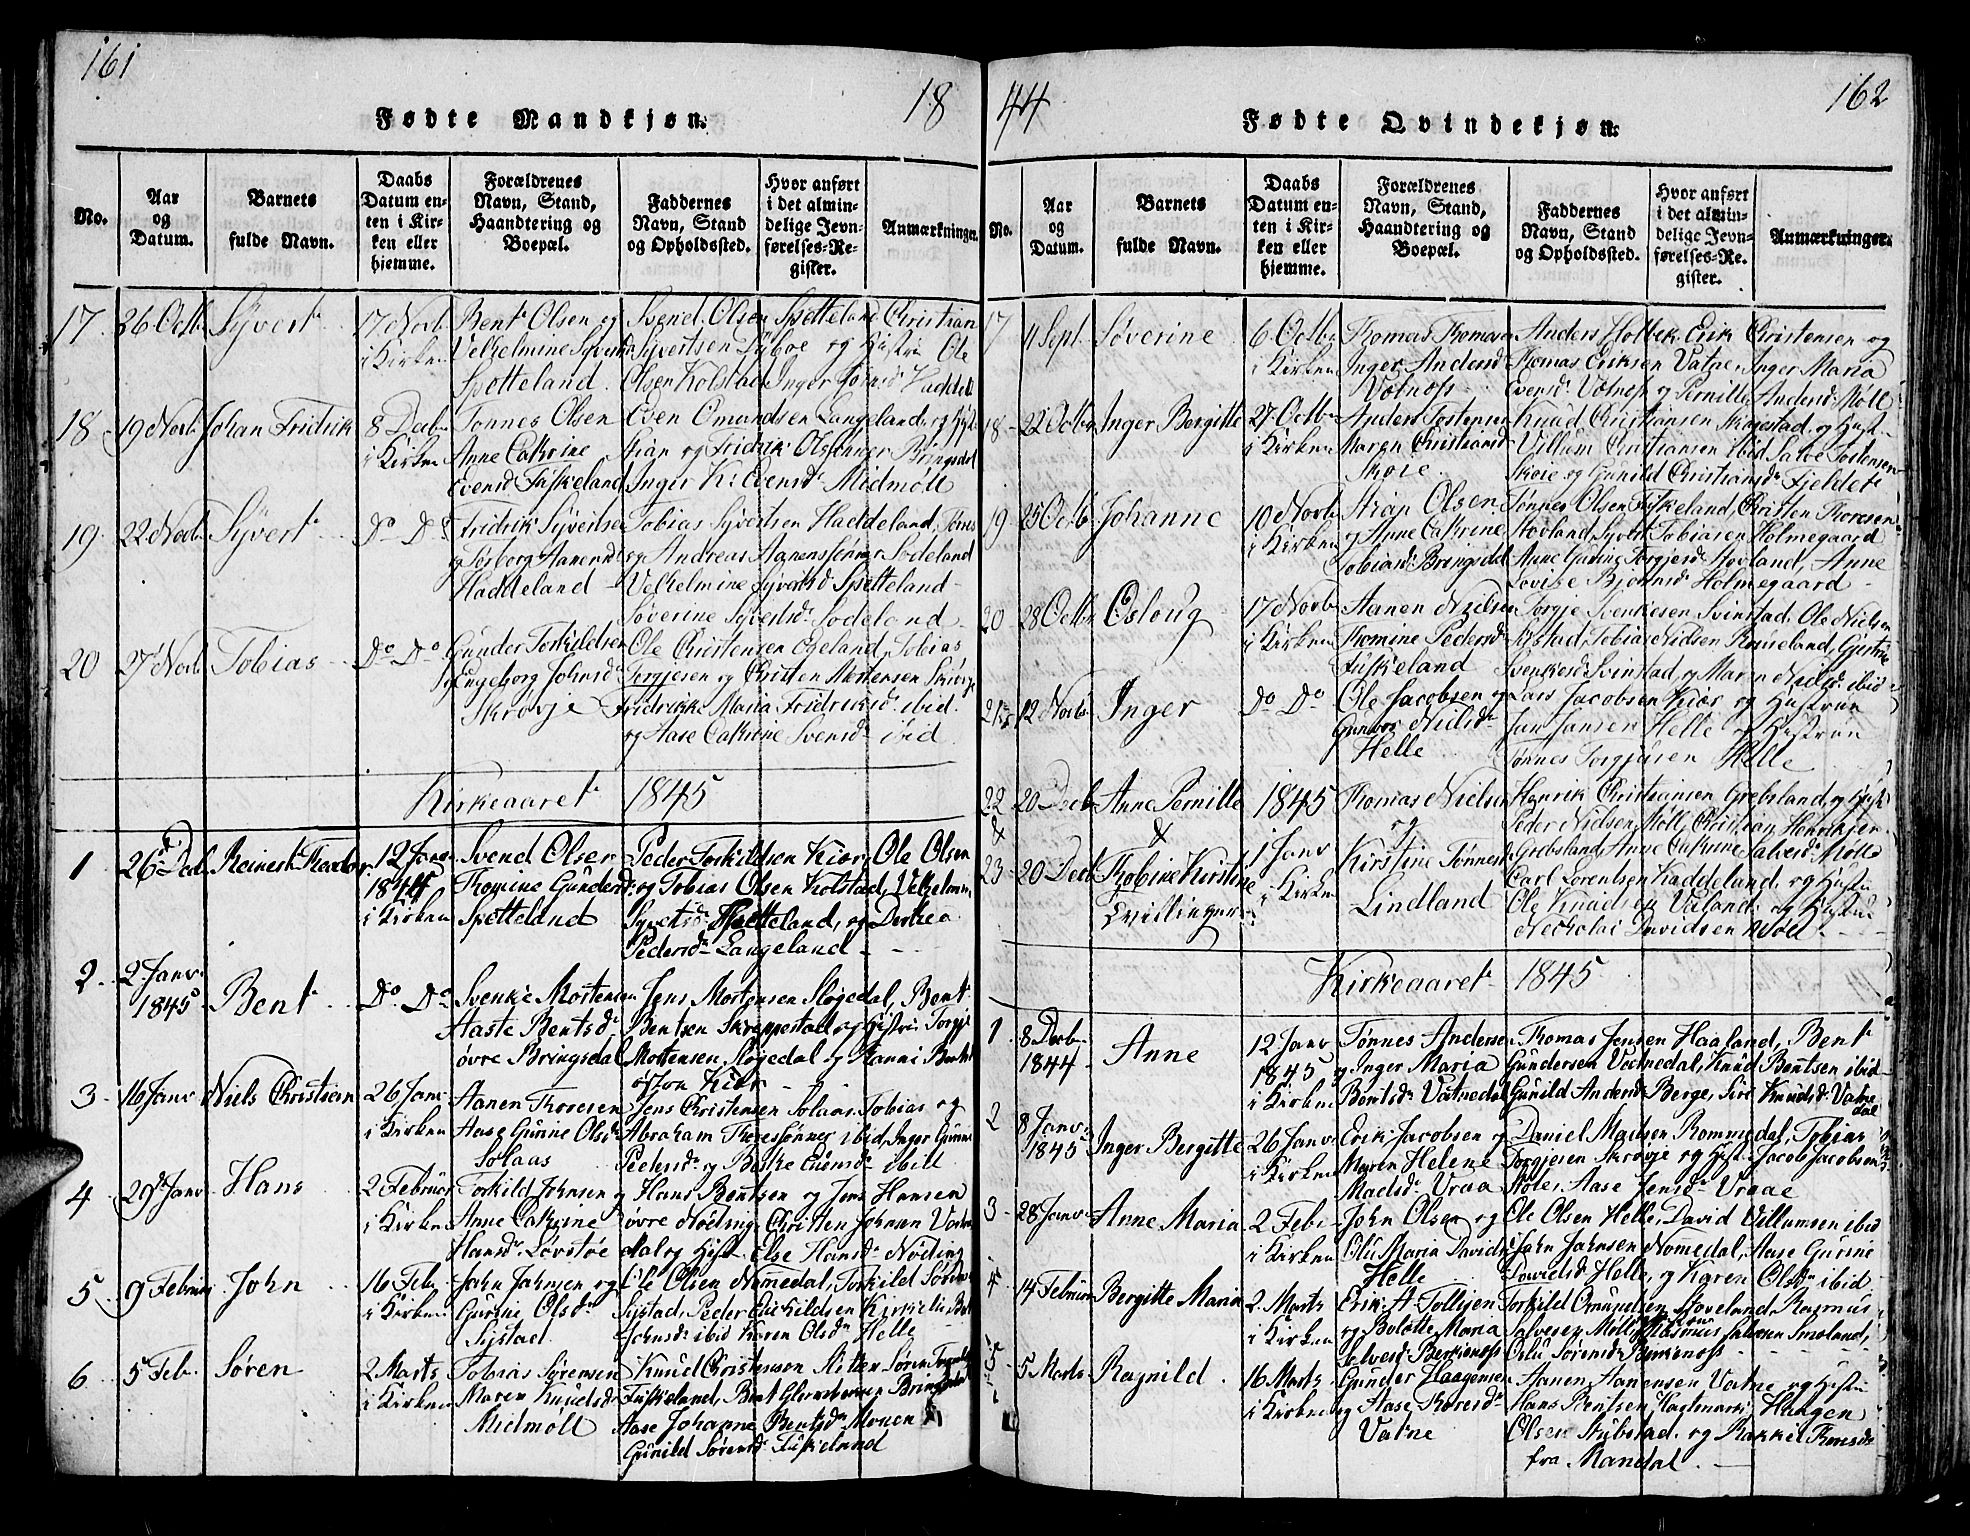 161
18
Fødte Mandkjøn.
No.
Aar og Datum.
Barnets fulde Navn.
Daabs Datum enten i Kirken eller hjemme.
Forældrenes Navn, Stand, Haandtering og Boepæl.
Faddernes Navn, Stand og Opholdssted.
Hvor anført i det almindelige Jevnførelses-Register.
Anmærkninger.
17. 26 Octb. Syvert 17 Novb. i Kirken
Bent Olsen og
Velhelmine Syvertsd
Spetteland.
Svend Olsen Spetteland Christian
Syvertsen Dyboe og Hustru Ole
Olsen Kolstad Inger Jørnsd. Haddel
18 19 Novb. Johan Fridrik 8 Decb. i Kirken
Tønnes Olsen
Anne Cathrine
Evensd. Fiskeland
Even Omundsen Langeland, og Hust
Arian og Fridrik Olsønner Bringsdal
Inger K: Evensd. Midmøll
19. 22 Novb. Syvert Do Do
Fridrik Syvertsen
og Torborg Aanensd
Haddeland
Tobias Syvertsen Haddeland,
og Andreas Aanenssønner Sodeland
Velhelmine Syvertsd. Spetteland
Søverine Syvertsd. Sodeland
20 27 Novb. Tobias Do Do
Gunder Torkildsen
og Ingeborg Johnsd.
Skrøvje
Ole Christensen Egeland, Tobias
Torgjesen og Christen Mortensen Skrøvje
Fridrikke Maria Fridriksd. ibid.
og Aase Cathrine Svensd. ibid
Kirkeaaret 1845
1 26 Decb. Reinert Theodor 12 Janv. 1845 i Kirken
Svend Olsen
Thomine Gundersd.
Spetteland
Peder Torkildsen Kiær, Ole Olsen
og Tobias Olsen Kolstad, Velhelmin
Syvertsd. Spetteland, og Dorthea
Pedersd. Langeland
2. 2 Janv. 1845 Bent Do. Do
Svenke Mortensen
Aaste Bentsd.
øvre Bringsdal
Jens Mortensen Sløgedal, Bent
Bentsen Skreppestad og Hustru Torgje
Mortensen Sløgedal og Hanni Bentsd
Kiær
3 16 Janv. Niels Christian 26 Janv. i Kirken
Aanen Thoresen
Aase Gunne Olsd.
Solaas
Jens Christensen Solaas Tobias og
Abraham Thoressønner ibid, Inger Gunne
Pedersd. og Evensd. ibid
4 29 Janv. Hans 2 Februar i Kirken
Torkild Johnsen og
Anne Cathrine
Hansd. Løvstøe
Hans Bentsen og Jens Hansen
øvre Nøding, Christen Johnsen Vatne
dal og Hust. Else Hansd. Nøding
5 9 Februar John 16 Feb. i Kirken
John Johnsen og
Gunne Olsd.
Systad
Ole Olsen Nomedal, Torkild
Systad, Peder Eskildsen Kirkelie,
Johnsd. ibid Karen Olsd. Helle
6 5 Feb. Søren 2 Marts i Kirken
Tobias Sørensen
Maren Knudsd.
Midmøll
Knud Christensen Sitter Søren
Fuskeland, Bent Bringsdal
Aase Johanne Bentsd. Monen
Gunild Sørensd. Fuskeland
44
162
Fødte Qvindekjøn.
No.
Aar og Datum.
Barnets fulde Navn.
Daabs Datum enten i Kirken eller hjemme.
Forældrenes Navn, Stand, Haandtering og Boepæl.
Faddernes Navn, Stand og Opholdssted.
Hvor anført i det almindelige Jevnførelses-Register.
Anmærkninger.
17 4 Sept. Søverine 6 Octbr. i Kirken
Thomas Thomasen
Inger Andersd
Vatness
Anders Holbek, Erik Christensen og
Thomas Eriksen Vatne, Inger Maria
Evensd. Vatness og Pernille Andersd. Møll
18 22 Octbr. Inger Bergitte 27 Octb. i Kirken
Anders Tostensen
Maren Christiansd
Skoie
Knud Christiansen Skogestad, og Hust
Villum Christiansen ibid Salve Tostensen
Skoie og Gunild Christiansd. Fjeldet
19 25 Octb. Johanne 10 Novb. i Kirken
Arian Olsen
og Anne Cathrine
Tobiasd. Bringsdal
Tønnes Olsen Fiskeland, Christen Thoresen
Hovland, Syvert Tobiasen Holmegaard
Anne Gurine Torgjersd. Hovland, Anne
Lovise Bjørnsd. Holmegaard
20 28 Octbr. Osloug 17 Novb. i Kirken
Aanen Nielsen
Thomine Pedersd.
Fuskeland
Torgje Svenkesen Svinstad, Ole Nielsen
Systad, Tobias Nielsen Romeland, Gjertrue
Svenkesd. Svinstad og Maren Nielsd. ibid
21 12 Novb. Inger Do Do
Ole Jacobsen og
Gunvor Nielsd.
Helle
Lars Jacobsen Kiær og Hustrue
Jan Jansen Helle og Hustrun
Tønnes Torgjusen Helle
22 20 Decb Anne Pernille
&
23 20 Decb Thobine Kirstine
Tvillinger
1845
1 Janv
i Kirken
Thomas Nielsen
og
Kirstine Tønnesd
Lindland
Henrik Christiansen Grebsland, og Hust
Peder Nielsen Møll, Christian Henriksen
Grebsland, Anne Cathrine Salvesd. Møll
Carl Lorentsen Haddeland, og Hustru
Ole Knudsen Valand, og Hustrue
Neckolai Davidsen Møll
Kirkeaaret 1845
1 8 Decb. 1844 Anne 12 Janv 1845 i Kirken
Tønnes Andersen
og Inger Maria
Bentsd. Vatnedal
Thomas Jensen Haaland, Bent
Gundersen Vatnedal, Knud Bentsen ibid
Gunild Andersd. Berge, Siri Knudsd. Vatne
dal
2 8 Janv. 1845 Inger Bergitte 26 Janv. i Kirken
Erik Jacobsen og
Maren Helene
Madsd. Vraa
Daniel Madsen Rommedal, Tobias
Torgjesen Skrøvje og Hust. Jacob Jacobsen
Støle, Aase Jensd. Vraae
3 28 Janv. Anne Maria 2 Feb. i Kirken
John Olsen og
Olu Maria Davidsd
Helle
Ole Olsen Helle, David Villumsen ibid
John Johnsen Nomedal, Aase Gurine
Davidsd. Helle, og Karen Olsd. ibid
4 14 Februar Bergitte Maria 2 Marts i Kirken
Erik A. Tollisen
og Bolette Maria
Salvesd. Berkenøss
Torkild Omundsen Støveland Rasmus
Salvesen Møll Rasmus Salvesen Smaland,
Oslu Sørensd. Berkenøss
5 5 Marts Ragnild. 16 Marts i Kirken
Gunder Haagensen
og Aase Thoresd.
Vatne
Aanen Aanensen Vatne og Hustru
Hans Bentsen Haagen
Olsen Stubstad, og Rakkel Thoresd.
fra Mandal.